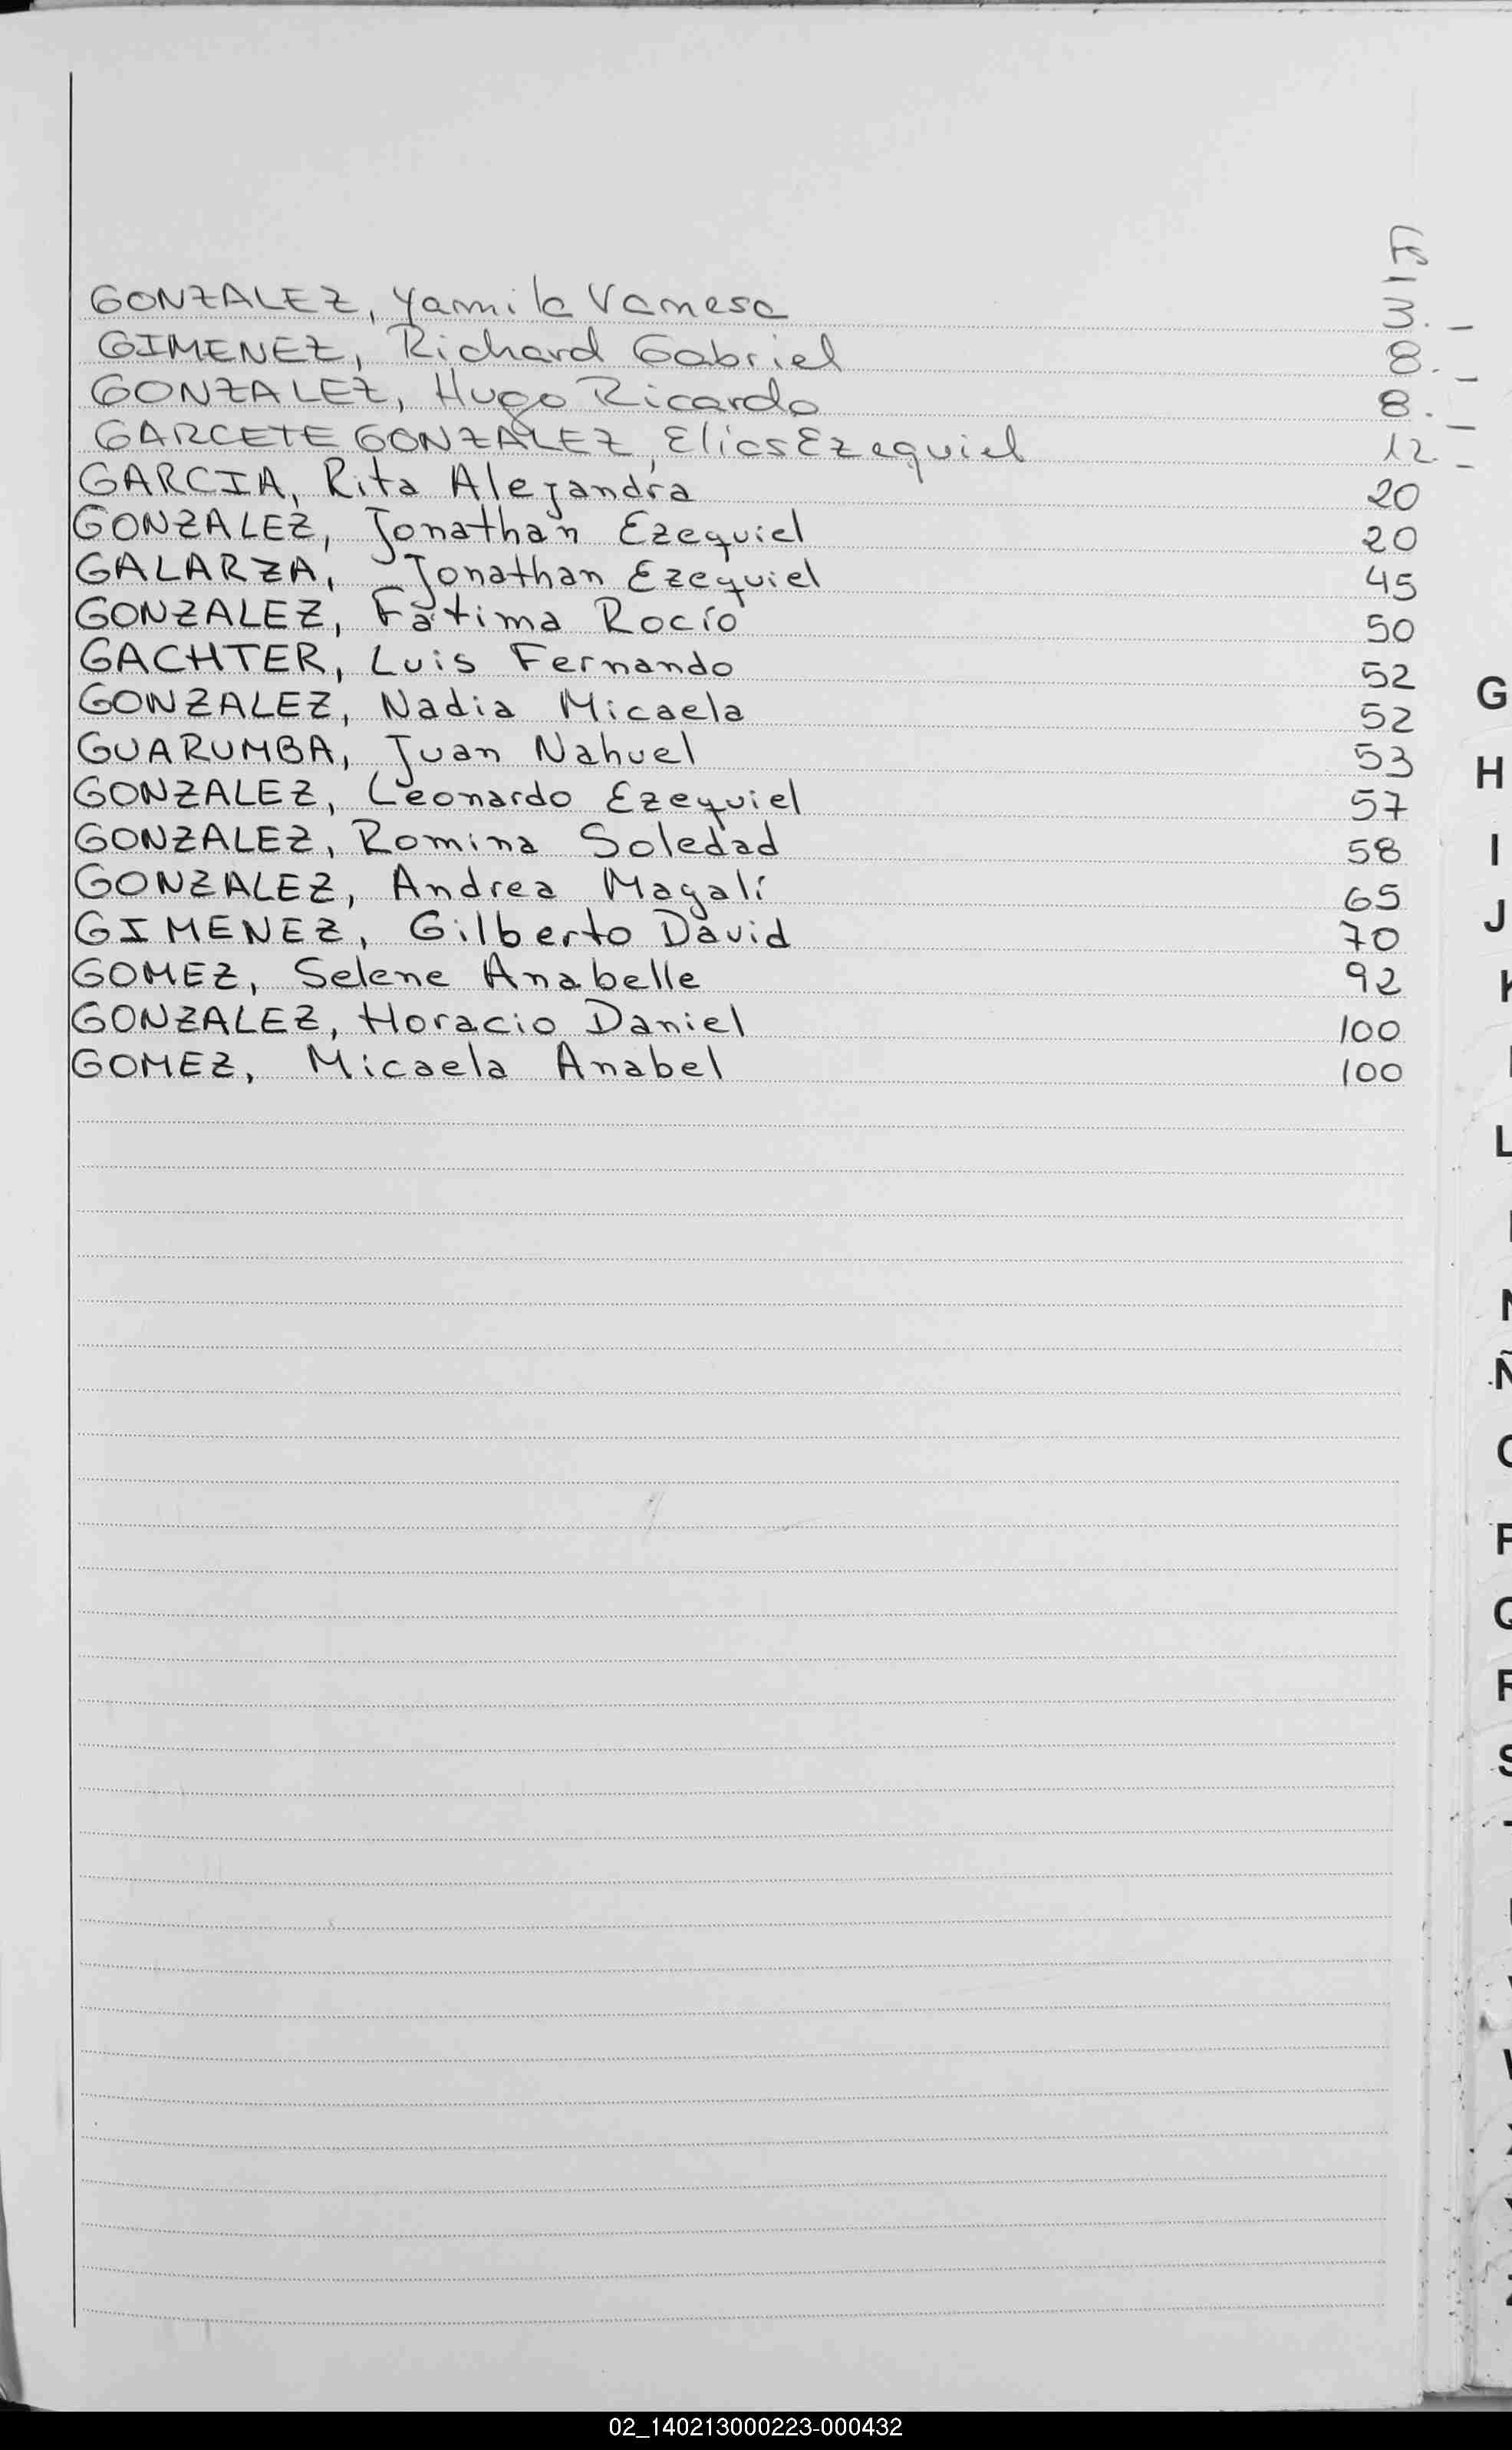 Fs
GONZALEZ, Yamila Vanesa 3.-
GIMENEZ, Richard Gabriel 8.-
GONZALEZ, Hugo Ricardo 8.-
GARCETE GONZALEZ, Elias Ezequiel 12.-
GARCIA, Rita Alejandra 20
GONZALEZ, Jonathan Ezequiel 20
GALARZA, Jonathan Ezequiel 45
GONZALEZ, Fátima Rocío 50
GACHTER, Luis Fernando 52
GONZALEZ, Nadia Micaela 52
GUARUMBA, Juan Nahuel 53
GONZALEZ, Leonardo Ezequiel 57
GONZALEZ, Romina Soledad 58
GONZALEZ, Andrea Magalí 65
GIMENEZ, Gilberto David 70
GOMEZ, Selene Anabelle 92
GONZALEZ, Horacio Daniel 100
GOMEZ, Micaela Anabel 100
G
H
I
J
L
Ñ
P
Q
R
S
02_140213000223-000432